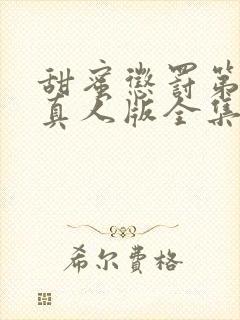 甜蜜懲罰第
真人版全集
希尔费格